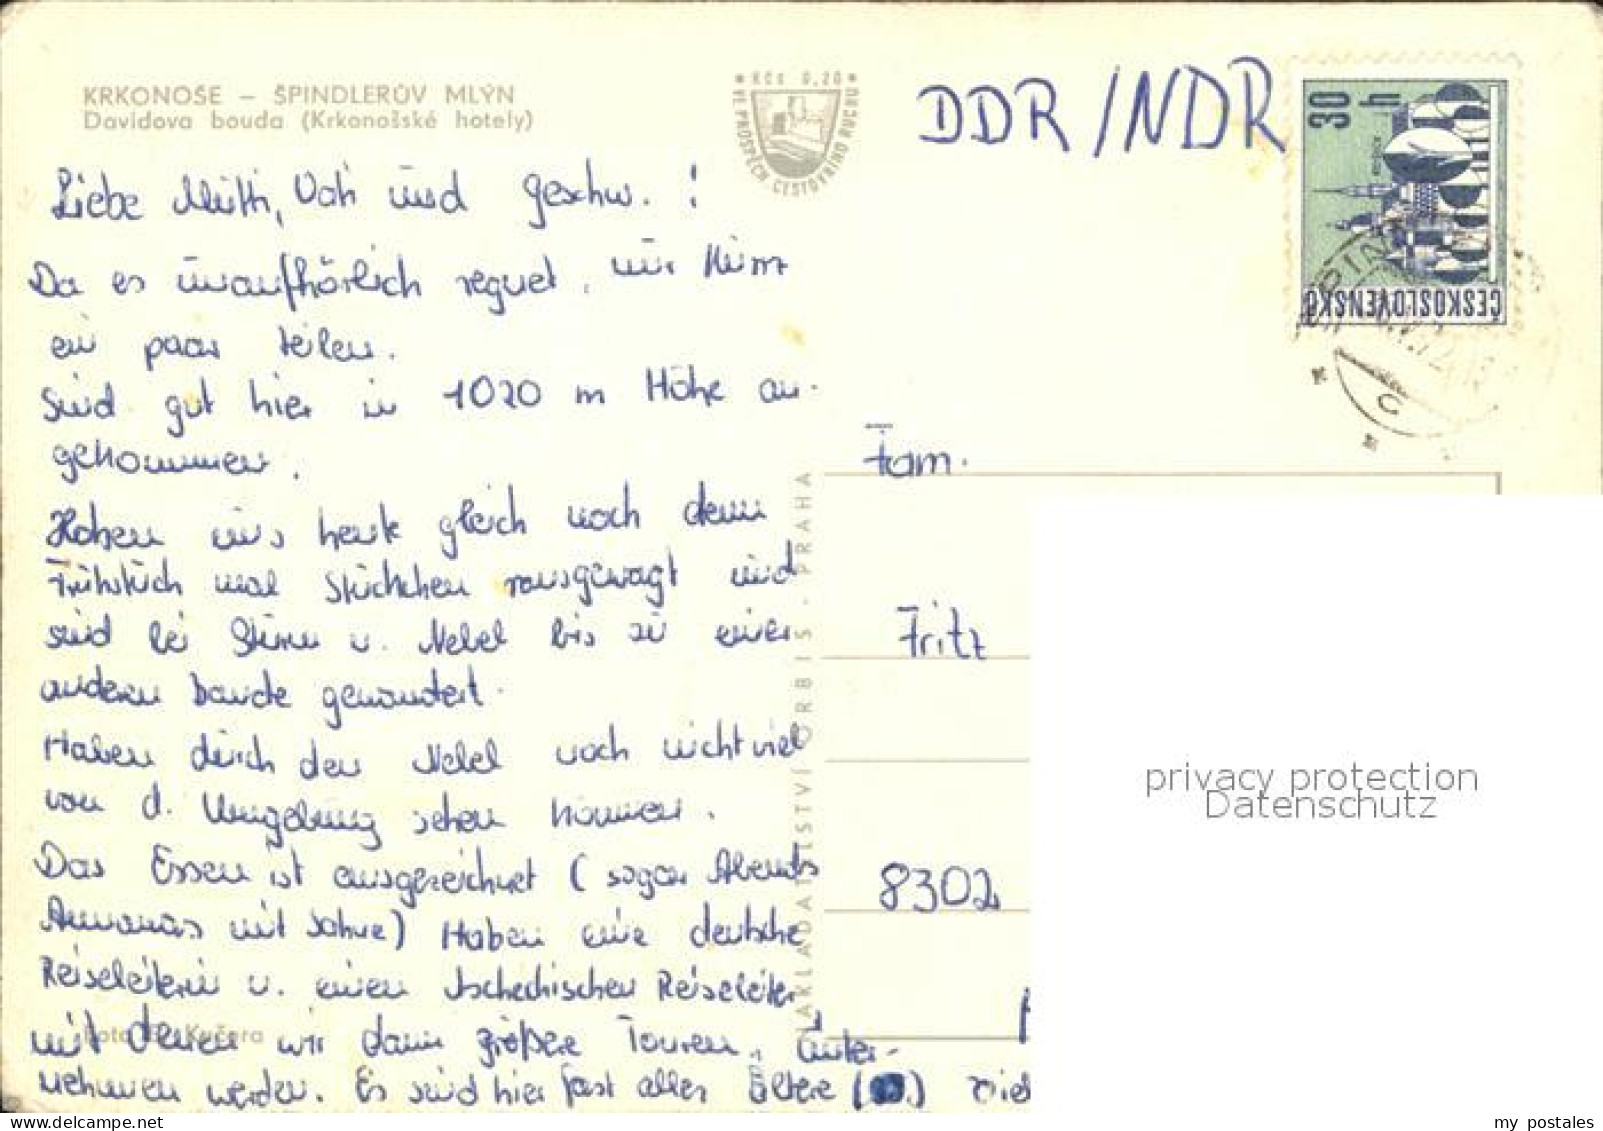 KRKONOŠE – ŠPINDLERŮV MLÝN
Davidova bouda (Krkonošské hotely)
KČs 0,20
VE PROSPĚCH CESTOVNÍHO RUCHU
DDR/NDR
30 h
ČESKOSLOVENSKO
Liebe Mutti, Vati und Geschw. !
Da es unaufhörlich regnet, nur kurz
ein paar Zeilen.
Sind gut hier in 1020 m Höhe an-
gekommen.
Haben uns heute gleich nach dem
Frühstück mal Stückchen rausgewagt und
sind bei Sturm u. Nebel bis zu einer
andern Baude gewandert.
Haben durch den Nebel noch nicht viel
von d. Umgebung sehen können.
Das Essen ist ausgezeichnet (sogar Abends
Annanas mit Sahne) Haben eine deutsche
Reiseleiterin u. einen tschechischen Reiseleiter
mit denen wir dann größere Touren unter-
nehmen werden. Es sind hier fast alles ältere
Foto Kučera
NAKLADATELSTVÍ ORBIS - PRAHA
Fam.
Fritz
8302
privacy protection
Datenschutz
my postales